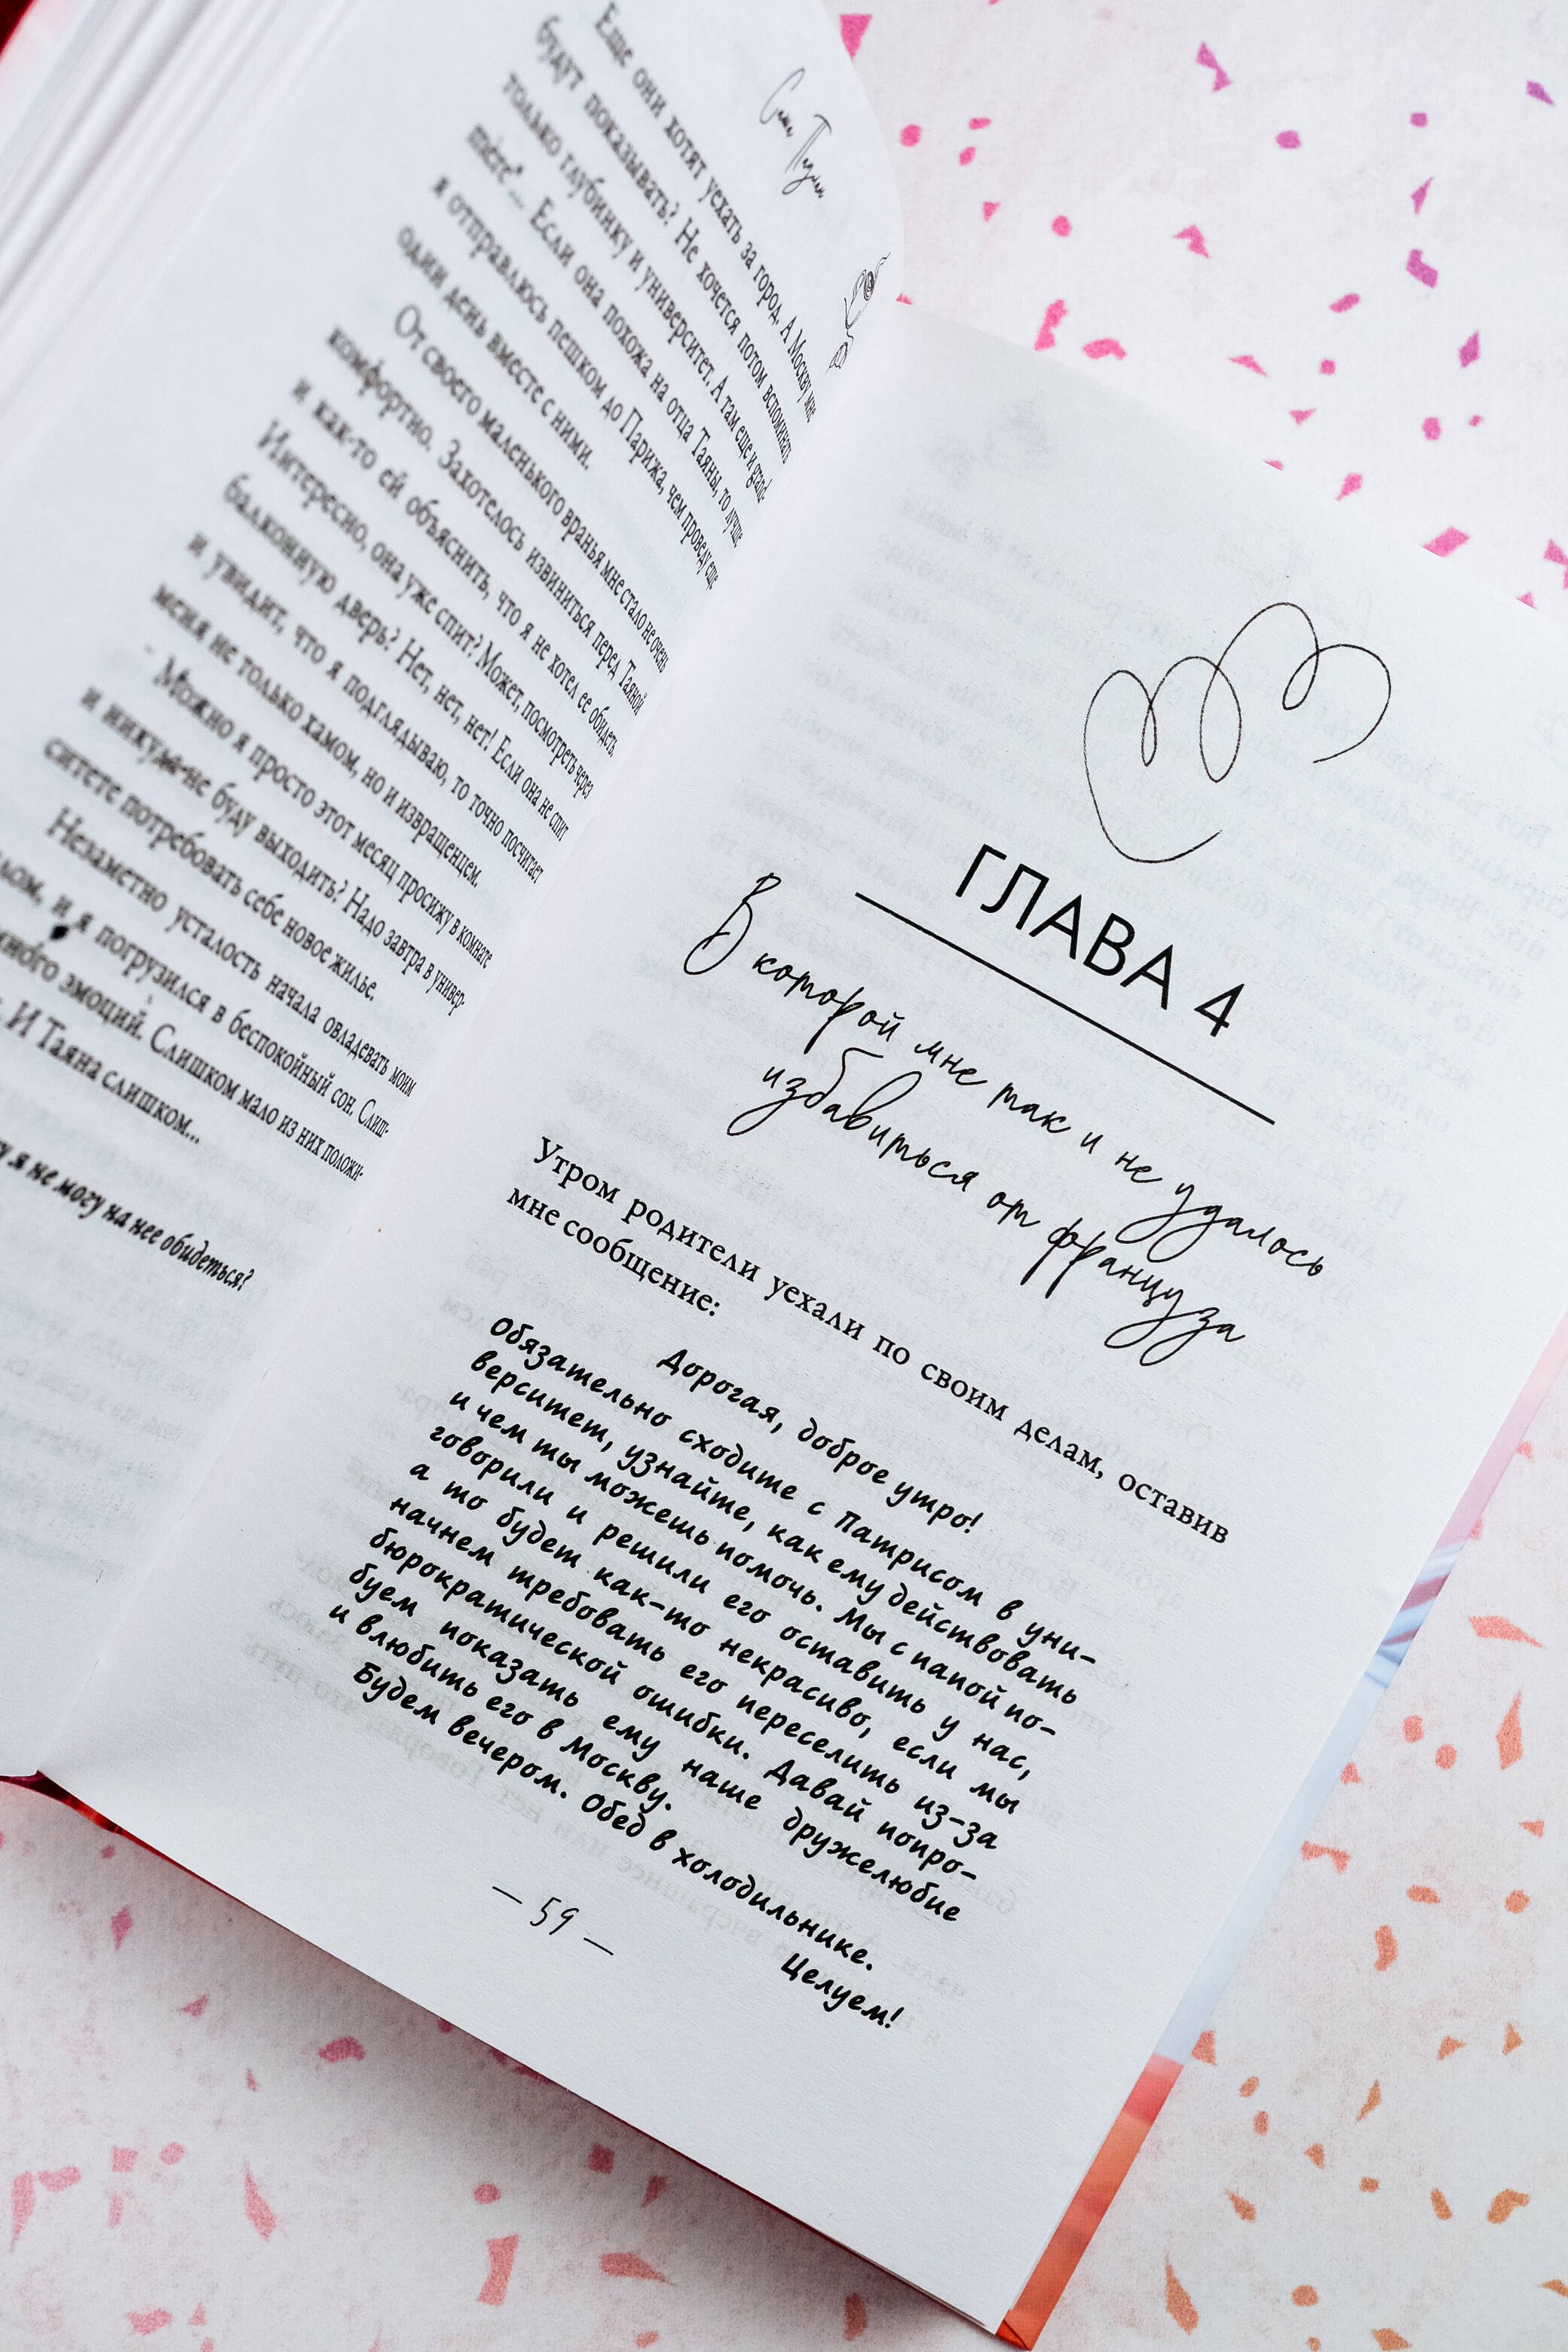 Саша Пулин
Еще они хотят уехать за город. А Москву мне
будут показывать? Не хочется потом вспоминать
только глубинку и университет. А там еще и grand-
mère... Если она похожа на отца Таяны, то лучше
я отправлюсь пешком до Парижа, чем проведу еще
один день вместе с ними.
От своего маленького вранья мне стало не очень
комфортно. Захотелось извиниться перед Таяной
и как-то ей объяснить, что я не хотел ее обидеть.
Интересно, она уже спит? Может, посмотреть через
балконную дверь? Нет, нет, нет! Если она не спит
и увидит, что я подглядываю, то точно посчитает
меня не только хамом, но и извращенцем.
- Можно я просто этот месяц просижу в комнате
и никуда не буду выходить? Надо завтра в универ-
ситете потребовать себе новое жилье.
Незаметно усталость начала овладевать моим
и я погрузился в беспокойный сон. Слиш-
много эмоций. Слишком мало из них положи-
И Таяна слишком...
я не могу на нее обидеться?
ГЛАВА 4
В которой мне так и не удалось
избавиться от француза
Утром родители уехали по своим делам, оставив
мне сообщение:
Дорогая, доброе утро!
Обязательно сходите с Патрисом в уни-
верситет, узнайте, как ему действовать
и чем ты можешь помочь. Мы с папой по-
говорили и решили его оставить у нас,
а то будет как-то некрасиво, если мы
начнем требовать его переселить из-за
бюрократической ошибки. Давай попро-
буем показать ему наше дружелюбие
и влюбить его в Москву.
Будем вечером. Обед в холодильнике.
Целуем!
— 59 —